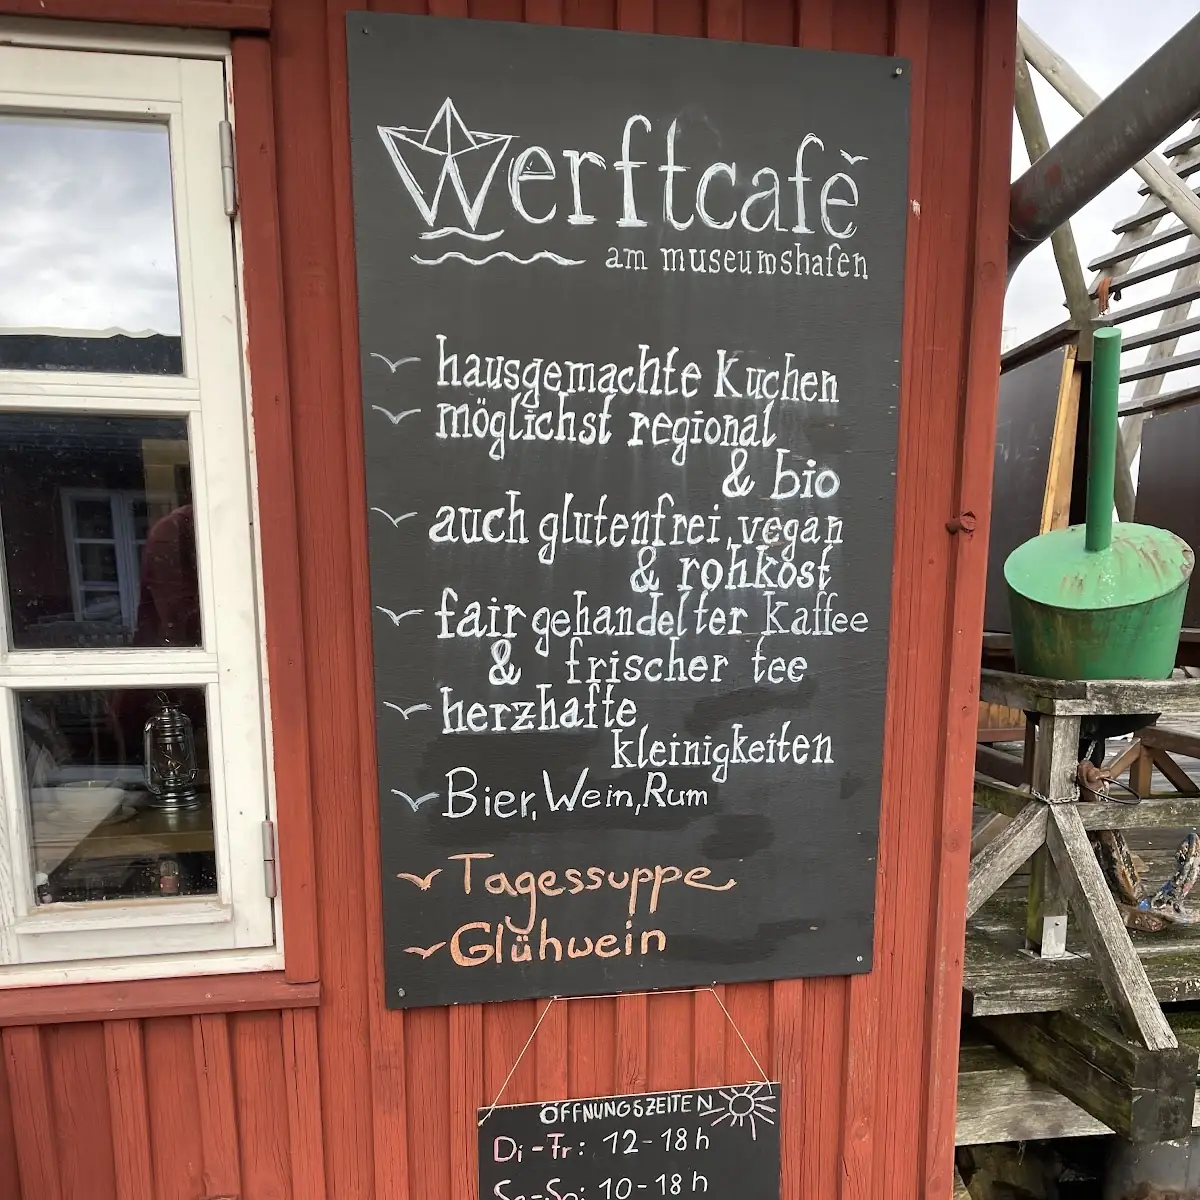 Werftcafé
am museumshafen
hausgemachte Kuchen
möglichst regional
& bio
auch glutenfrei, vegan
& rohkost
fair gehandelter Kaffee
& frischer tee
herzhafte
kleinigkeiten
Bier, Wein, Rum
Tagessuppe
Glühwein
ÖFFNUNGSZEITEN
Di-Fr: 12-18h
Sa-So: 10-18h